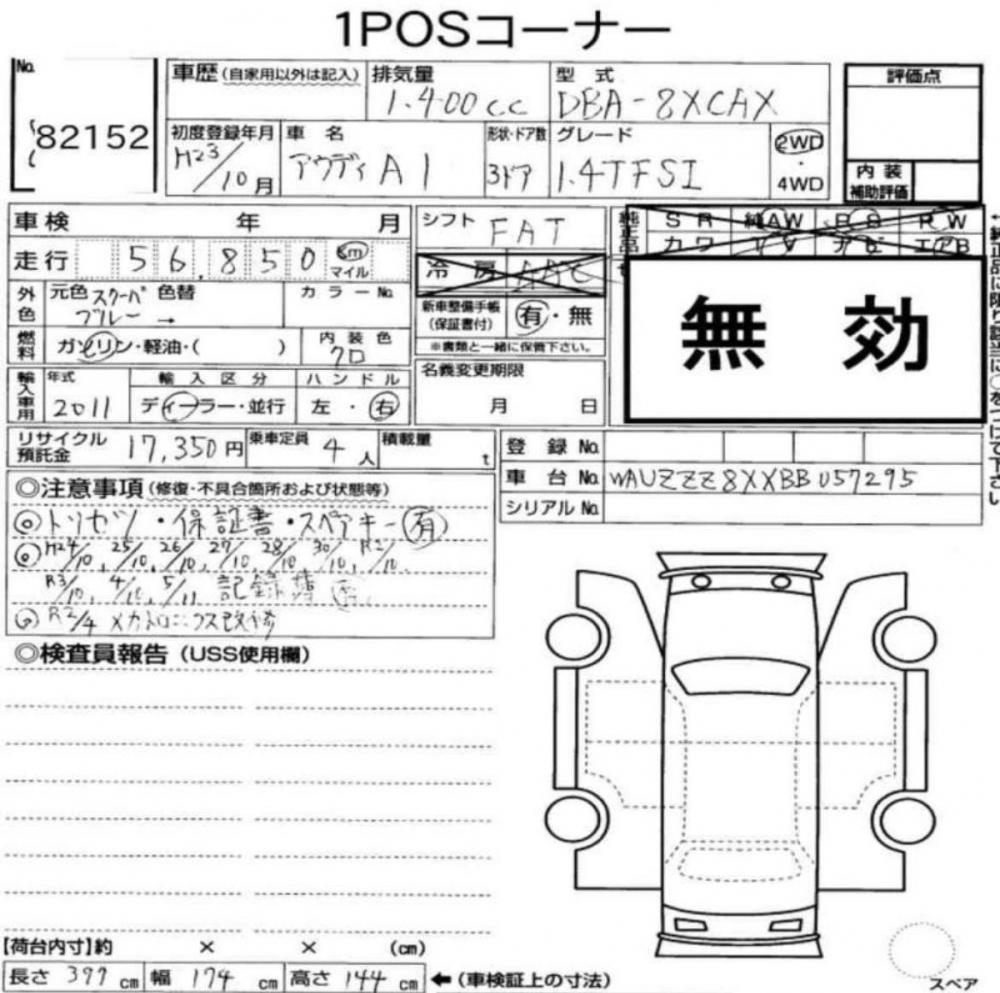 1POSコーナー
No. 82152
車歴(自家用以外は記入) 排気量 1.400cc 型式 DBA-8XCAX
初度登録年月 H23/10月 車名 アウディA1 形状・ドア数 3ドア グレード 1.4TFSI 2WD・4WD
評価点
内装補助評価
車検 年 月
走行 56.850 km マイル
外色 元色 スクーバブルー 色替 → カラーNo.
燃料 ガソリン・軽油・( ) 内装色 クロ
輸入車用 年式 2011 輸入区分 ディーラー・並行 ハンドル 左・右
シフト FAT
冷房 AAC
新車整備手帳(保証書付) 有・無
※書類と一緒に保管下さい。
名義変更期限 月 日
純正品 SR 純AW PS PW
カワ TV ナビ エアB
無効
リサイクル預託金 17,350円 乗車定員 4人 積載量 t
登録No.
車台No. WAUZZZ8XXBB057295
シリアルNo.
◎注意事項(修復・不具合箇所および状態等)
◎トリセツ・保証書・スペアキー有
◎H24/10, 25/10, 26/10, 27/10, 28/10, 30/10, R2/10,
R3/10, 4/10, 5/11 記録簿 有
◎R2/4 メカトロニクス改修
◎検査員報告(USS使用欄)
【荷台内寸】約 × × (cm)
長さ 397cm 幅 174cm 高さ 144cm ←(車検証上の寸法)
スペア